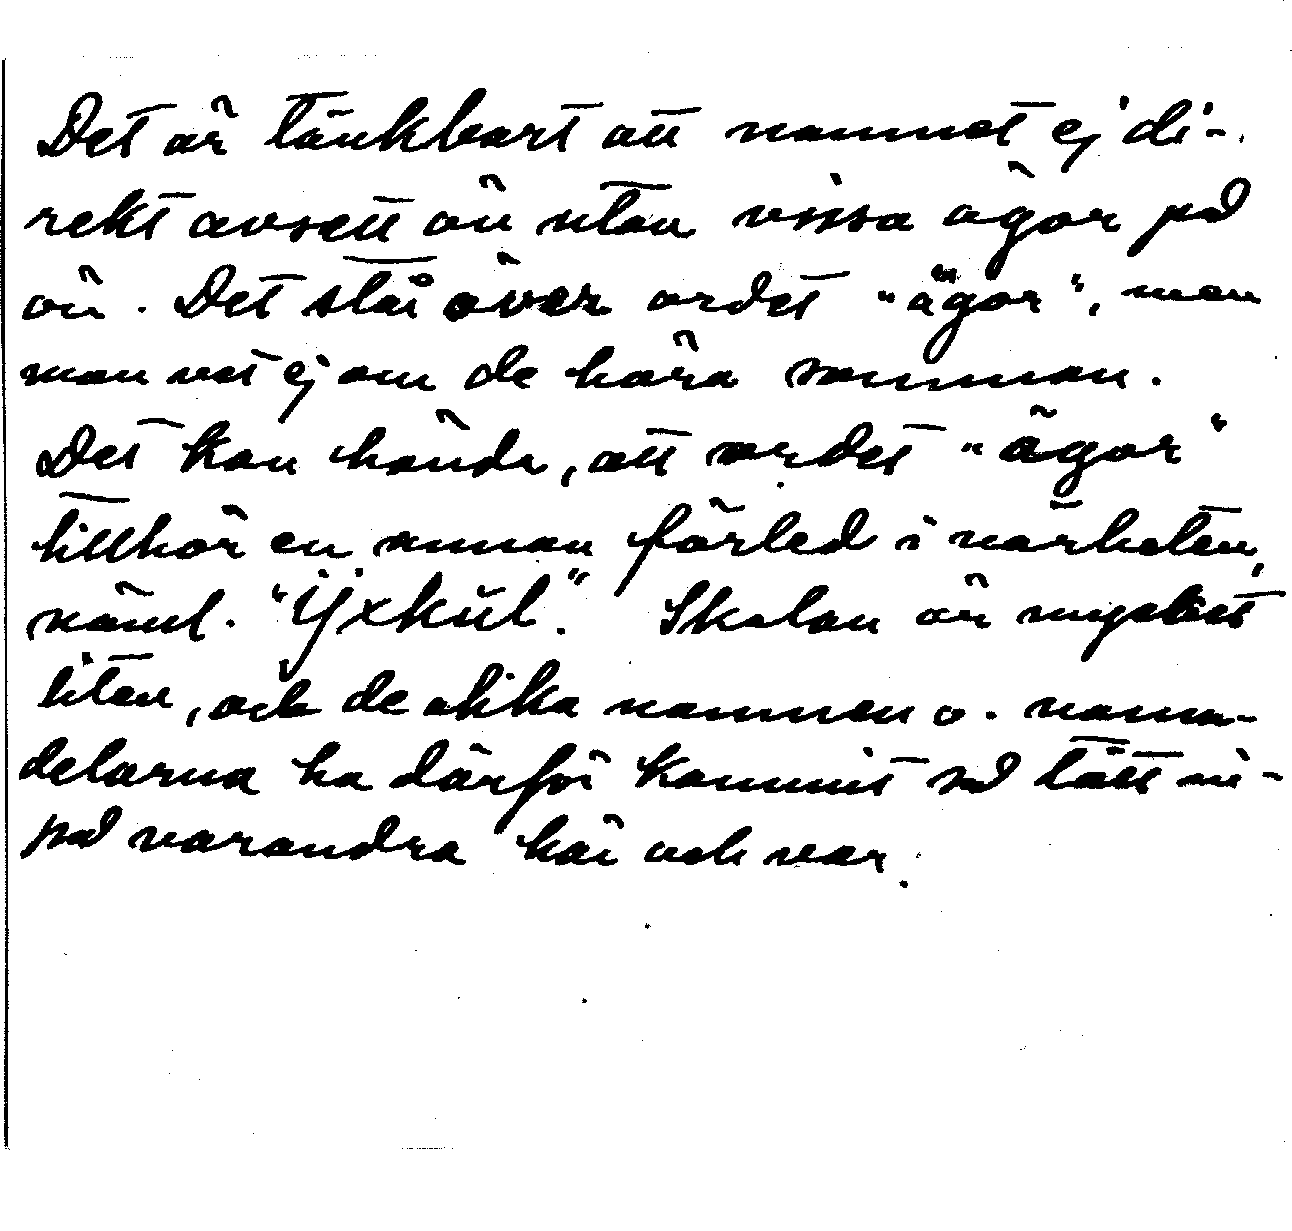 Det är tänkbart att namnet ej di-
rekt avsett ön utan vissa ägor på
ön. Det står över ordet "ägor", men
man vet ej om de höra samman.
Det kan hända, att ordet "ägor"
tillhör en annan förled i närheten,
näml. "Yxkül". Skalan är mycket
liten, och de olika namnen o. namn-
delarna ha därför kommit så tätt in-
på varandra här och var.